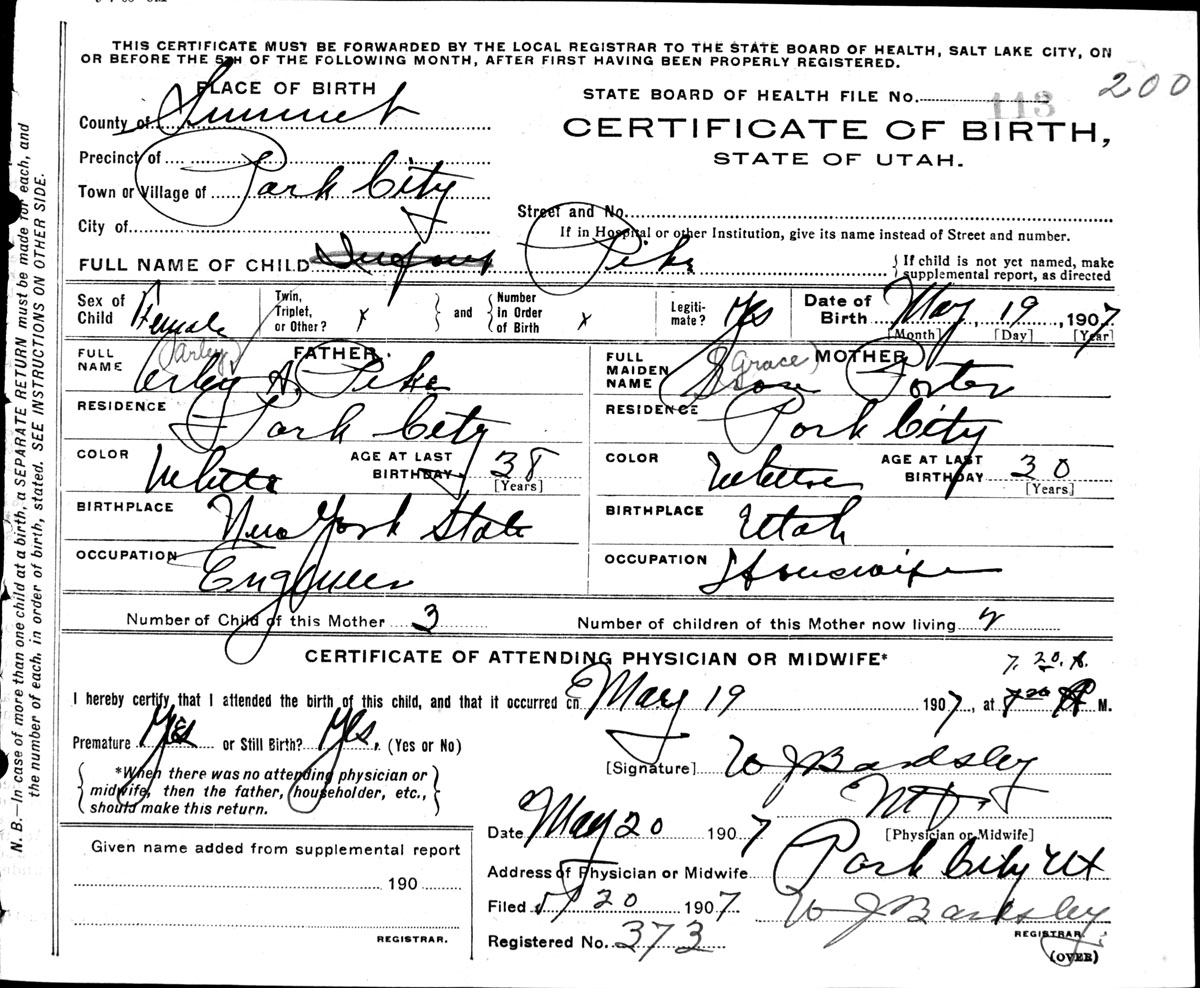 THIS CERTIFICATE MUST BE FORWARDED BY THE LOCAL REGISTRAR TO THE STATE BOARD OF HEALTH, SALT LAKE CITY, ON
OR BEFORE THE 5TH OF THE FOLLOWING MONTH, AFTER FIRST HAVING BEEN PROPERLY REGISTERED.
200
PLACE OF BIRTH
STATE BOARD OF HEALTH FILE No. 113
County of Summit
CERTIFICATE OF BIRTH,
STATE OF UTAH.
Precinct of
Town or Village of Park City
City of
Street and No.
If in Hospital or other Institution, give its name instead of Street and number.
FULL NAME OF CHILD Pike
If child is not yet named, make
supplemental report, as directed
Sex of Child Female
Twin, Triplet, or Other? x
and
Number in Order of Birth x
Legiti-mate? Yes
Date of Birth May, 19, 1907
[Month] [Day] [Year]
FATHER.
FULL NAME (Arley) Arley A. Pike
MOTHER
FULL MAIDEN NAME (Grace) Porter
RESIDENCE Park City
RESIDENCE Park City
COLOR White
AGE AT LAST BIRTHDAY 38
[Years]
COLOR White
AGE AT LAST BIRTHDAY 30
[Years]
BIRTHPLACE New York State
BIRTHPLACE Utah
OCCUPATION Engineer
OCCUPATION Housewife
Number of Child of this Mother 3
Number of children of this Mother now living 2
CERTIFICATE OF ATTENDING PHYSICIAN OR MIDWIFE*
7.20.A.
I hereby certify that I attended the birth of this child, and that it occurred on May 19 1907, at M.
Premature Yes or Still Birth? Yes, (Yes or No)
*When there was no attending physician or
midwife, then the father, householder, etc.,
should make this return.
[Signature] W J Bardsley
M D
[Physician or Midwife]
Date May 20 1907
Address of Physician or Midwife Park City Ut
Given name added from supplemental report
190
REGISTRAR.
Filed 20 1907
W J Bardsley
REGISTRAR.
Registered No. 373
(OVER)
N. B.—In case of more than one child at a birth, a SEPARATE RETURN must be made for each, and
the number of each, in order of birth, stated. SEE INSTRUCTIONS ON OTHER SIDE.